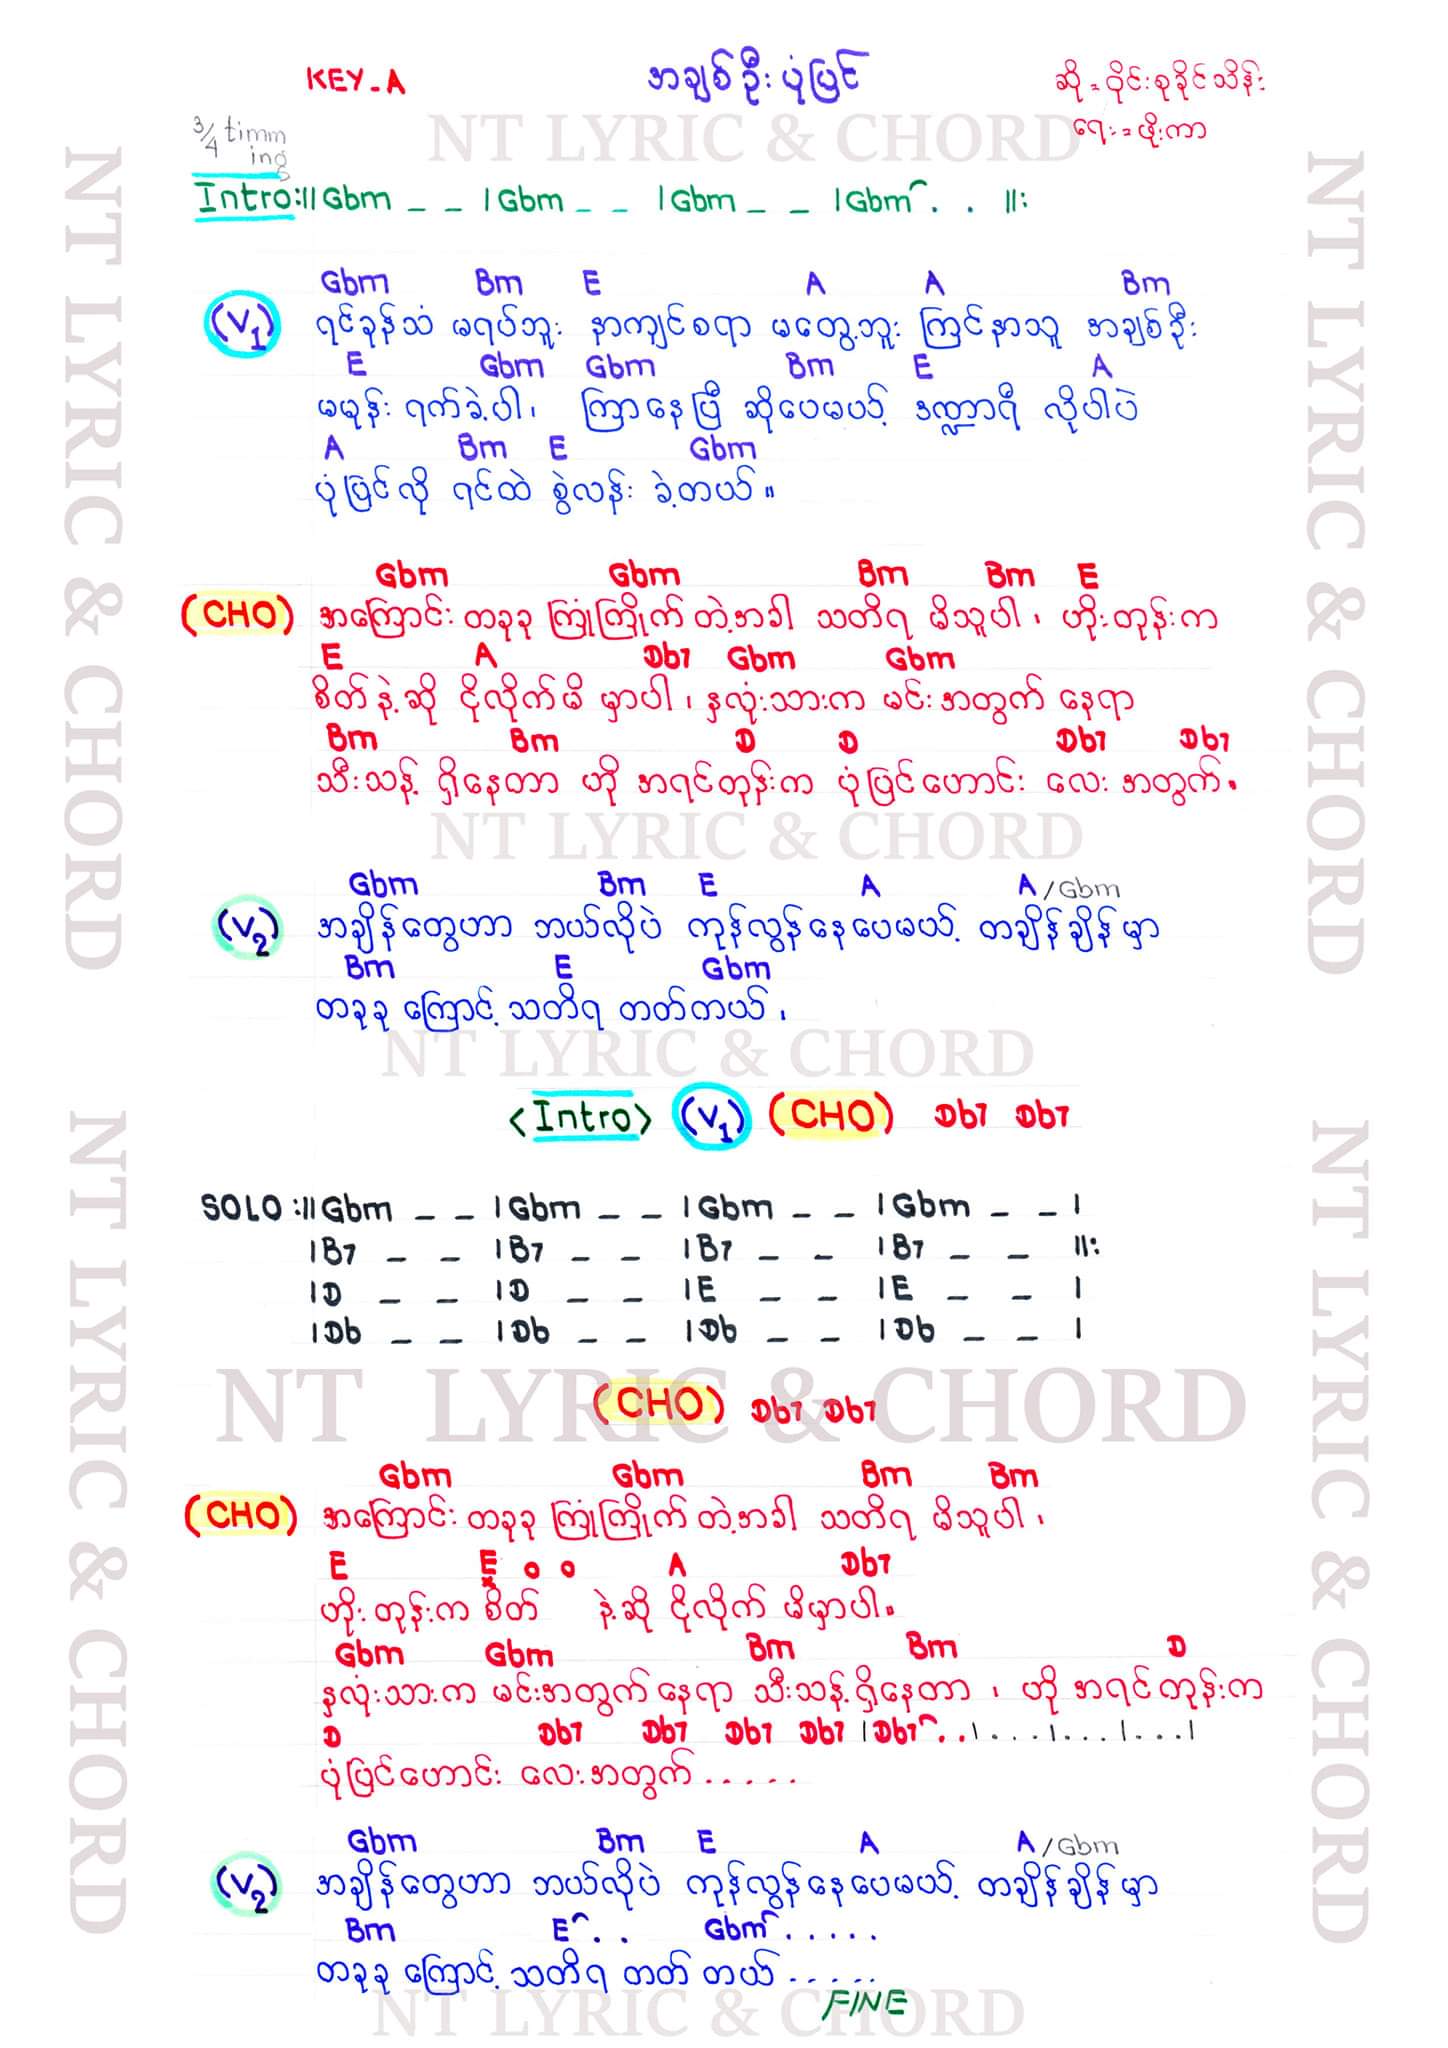 KEY-A အချစ်ဦးပုံပြင် ဆို = ဝိုင်းစုခိုင်သိန်း
3/4 timming ရေး = ဖိုးကာ
NT LYRIC & CHORD
Intro:||Gbm _ _ |Gbm _ _ |Gbm _ _ |Gbm . . ||:
Gbm Bm E A A Bm
(V1) ရင်ခုန်သံ မရပ်ဘူး နာကျင်စရာ မတွေ့ဘူး ကြင်နာသူ အချစ်ဦး
E Gbm Gbm Bm E A
မမုန်း ရက်ခဲ့ပါ၊ ကြာနေပြီ ဆိုပေမယ့် ဒဏ္ဍာရီ လိုပါပဲ
A Bm E Gbm
ပုံပြင်လို ရင်ထဲ စွဲလန်း ခဲ့တယ်။
Gbm Gbm Bm Bm E
(CHO) အကြောင်း တခုခု ကြုံကြိုက် တဲ့အခါ သတိရ မိသူပါ၊ ဟိုးတုန်းက
E A Db7 Gbm Gbm
စိတ်နဲ့ဆို ငိုလိုက်မိ မှာပါ၊ နှလုံးသားက မင်းအတွက် နေရာ
Bm Bm D D Db7 Db7
သီးသန့် ရှိနေတာ ဟို အရင်တုန်းက ပုံပြင်ဟောင်း လေး အတွက်.
NT LYRIC & CHORD
Gbm Bm E A A/Gbm
(V2) အချိန်တွေဟာ ဘယ်လိုပဲ ကုန်လွန်နေပေမယ့် တချိန်ချိန်မှာ
Bm E Gbm
တခုခု ကြောင့် သတိရ တတ်တယ်၊
NT LYRIC & CHORD
<Intro> (V1) (CHO) Db7 Db7
SOLO :||Gbm _ _ |Gbm _ _ |Gbm _ _ |Gbm _ _ |
|B7 _ _ |B7 _ _ |B7 _ _ |B7 _ _ ||:
|D _ _ |D _ _ |E _ _ |E _ _ |
|Db _ _ |Db _ _ |Db _ _ |Db _ _ |
NT LYRIC & CHORD
(CHO) Db7 Db7
Gbm Gbm Bm Bm
(CHO) အကြောင်း တခုခု ကြုံကြိုက် တဲ့အခါ သတိရ မိသူပါ၊
E E o o A Db7
ဟိုးတုန်းက စိတ် နဲ့ဆို ငိုလိုက် မိမှာပါ။
Gbm Gbm Bm Bm D
နှလုံးသားက မင်းအတွက် နေရာ သီးသန့်ရှိနေတာ ၊ ဟို အရင်တုန်းက
D Db7 Db7 Db7 Db7 |Db7 . . | . . . | . . . | . . . |
ပုံပြင်ဟောင်း လေးအတွက် . . . . .
Gbm Bm E A A/Gbm
(V2) အချိန်တွေဟာ ဘယ်လိုပဲ ကုန်လွန်နေပေမယ့် တချိန်ချိန်မှာ
Bm E . . Gbm . . . . .
တခုခု ကြောင့် သတိရ တတ် တယ် . . . . .
FINE
NT LYRIC & CHORD
NT LYRIC & CHORD
NT LYRIC & CHORD
NT LYRIC & CHORD
NT LYRIC & CHORD